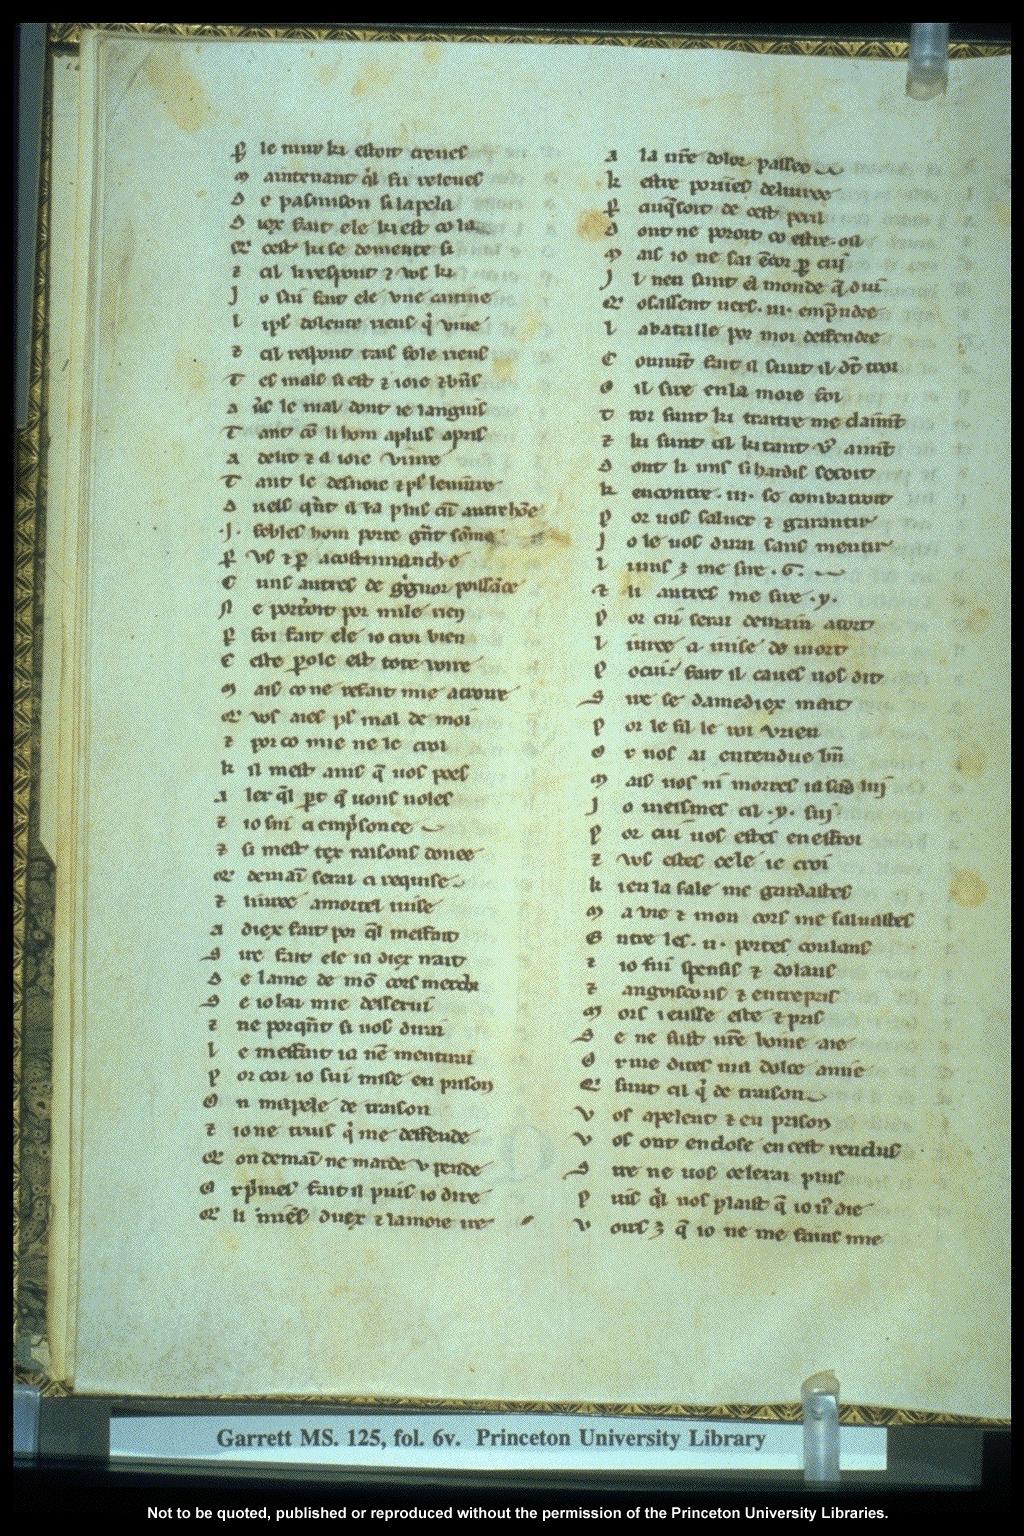 P le mur ki estoit creues
M aintenant q'l fu releues
D e pasmison si lapela
D iex fait ele ki est co la
Q cest ki se demente si
z cil li respont z vos ki
J o sui fait ele vne caitiue
L ipl' dolente riens q' viue
z cil respont tais fole riens
T es mals si est z ioie z bn's
A u's le mal dont ie languis
T ant co li hom aplus apris
A delit z a ioie viure
T ant le desuoie z pl' leniure
D uels qn't il la plus cu autre home
.J. febles hom porte gnt some
P vs z p acostumanche
C uns autres de gignor poissace
N e porteroit por mile rien
P foi fait ele io croi bien
C este parole est tote voire
M ais co ne refait mie acroire
Q vos aies pl' mal de moi
z por co mie ne le croi
K il mest auis q uos poes
A ler q'l part q uous uoles
z io sui ci emp'sonee
z si mest tex raisons donee
Q demai serai ci requise
z liuree amortel iuise
A diex fait por q'l mesfait
S ire fait ele ia diex nait
D e lame de mo cors merchi
S e io lai mie desserui
z ne porqn't si uos dirai
L e mesfait ia ne mentirai
P or coi io sui mise en prison
O n mapele de traison
z io ne truis q' me deffende
Q on demai ne marde v pende
O r p'mes fait il puis io dire
Q li miens duex z lamoie ire
A la ure dolor passee
K estre porries deliuree
P auqsoit de cest peril
D ont ne poroit co estre . oil
M ais io ne sai encor par cui
J l nen sunt el monde q dui
Q osassent uers .iii. emprendre
L abataille por moi deffendre
C oment fait il sunt il dot troi
O il sire en la moie foi
T roi sunt ki traitre me claiment
z ki sunt cil ki tant vos aiment
D ont li uns si hardis seroit
K encontre .iii. se combatroit
P or uos saluer z garantir
J o le uos dirai sans mentir
L iuns z me sire .G.
z li autres me sire .y.
P or cui serai demain atort
L iuree a iuise de mort
P or cui fait il caues uos dit
S ire se damediex mait
P or le fil le roi vrien
O r uos ai entendue bn
M ais uos ni morres ia sans lui
J o meismes cil .y. sui
P or cui uos estes en esfroi
z vos estes cele ie croi
K ien la sale me gardastes
M a vie z mon cors me saluastes
E ntre les .ii. portes coulans
z io fui pensis z dolans
z angoisceus z entrepris
M ors ieusse este z pris
S e ne fust ure boine aie
O r me dites ma dolce amie
Q sunt cil q' de traison
V os apelent z en prison
V os ont enclose en cest renclus
S ire ne uos celerai plus
P uis q'l uos plaist q io uos die
V oirs z q io ne me fains mie
Garrett MS. 125, fol. 6v. Princeton University Library
Not to be quoted, published or reproduced without the permission of the Princeton University Libraries.